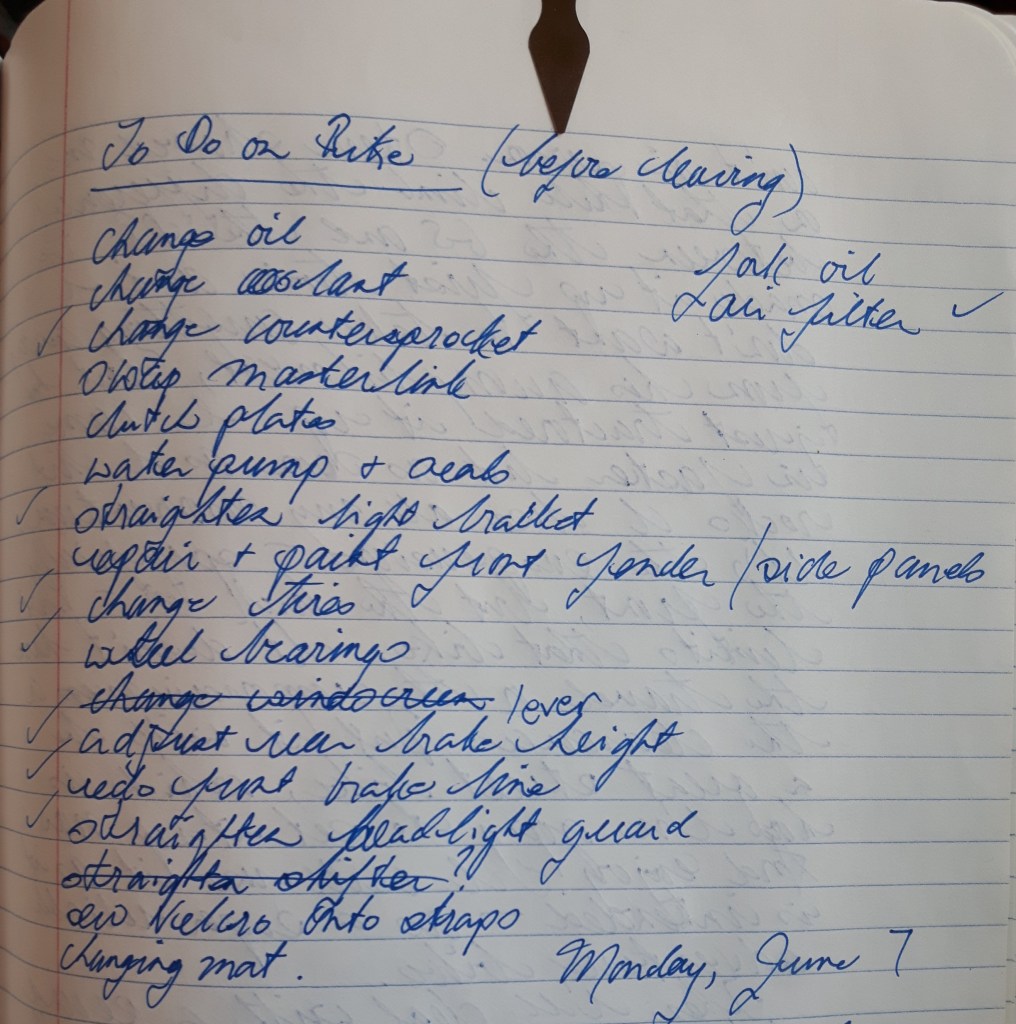 To Do on Bike (before leaving)
change oil
fork oil
change coolant
+ air filter ✓
✓ change countersprocket
+ clip masterlink
clutch plates
water pump + seals
✓ straighten light bracket
repair + paint front fender / side panels
✓ change tires
✓ wheel bearings
change windscreen
✓ adjust rear brake lever height
✓ redo front brake line
✓ straighten headlight guard
straighten shifter?
sew Velcro onto straps
changing mat.
Monday, June 7